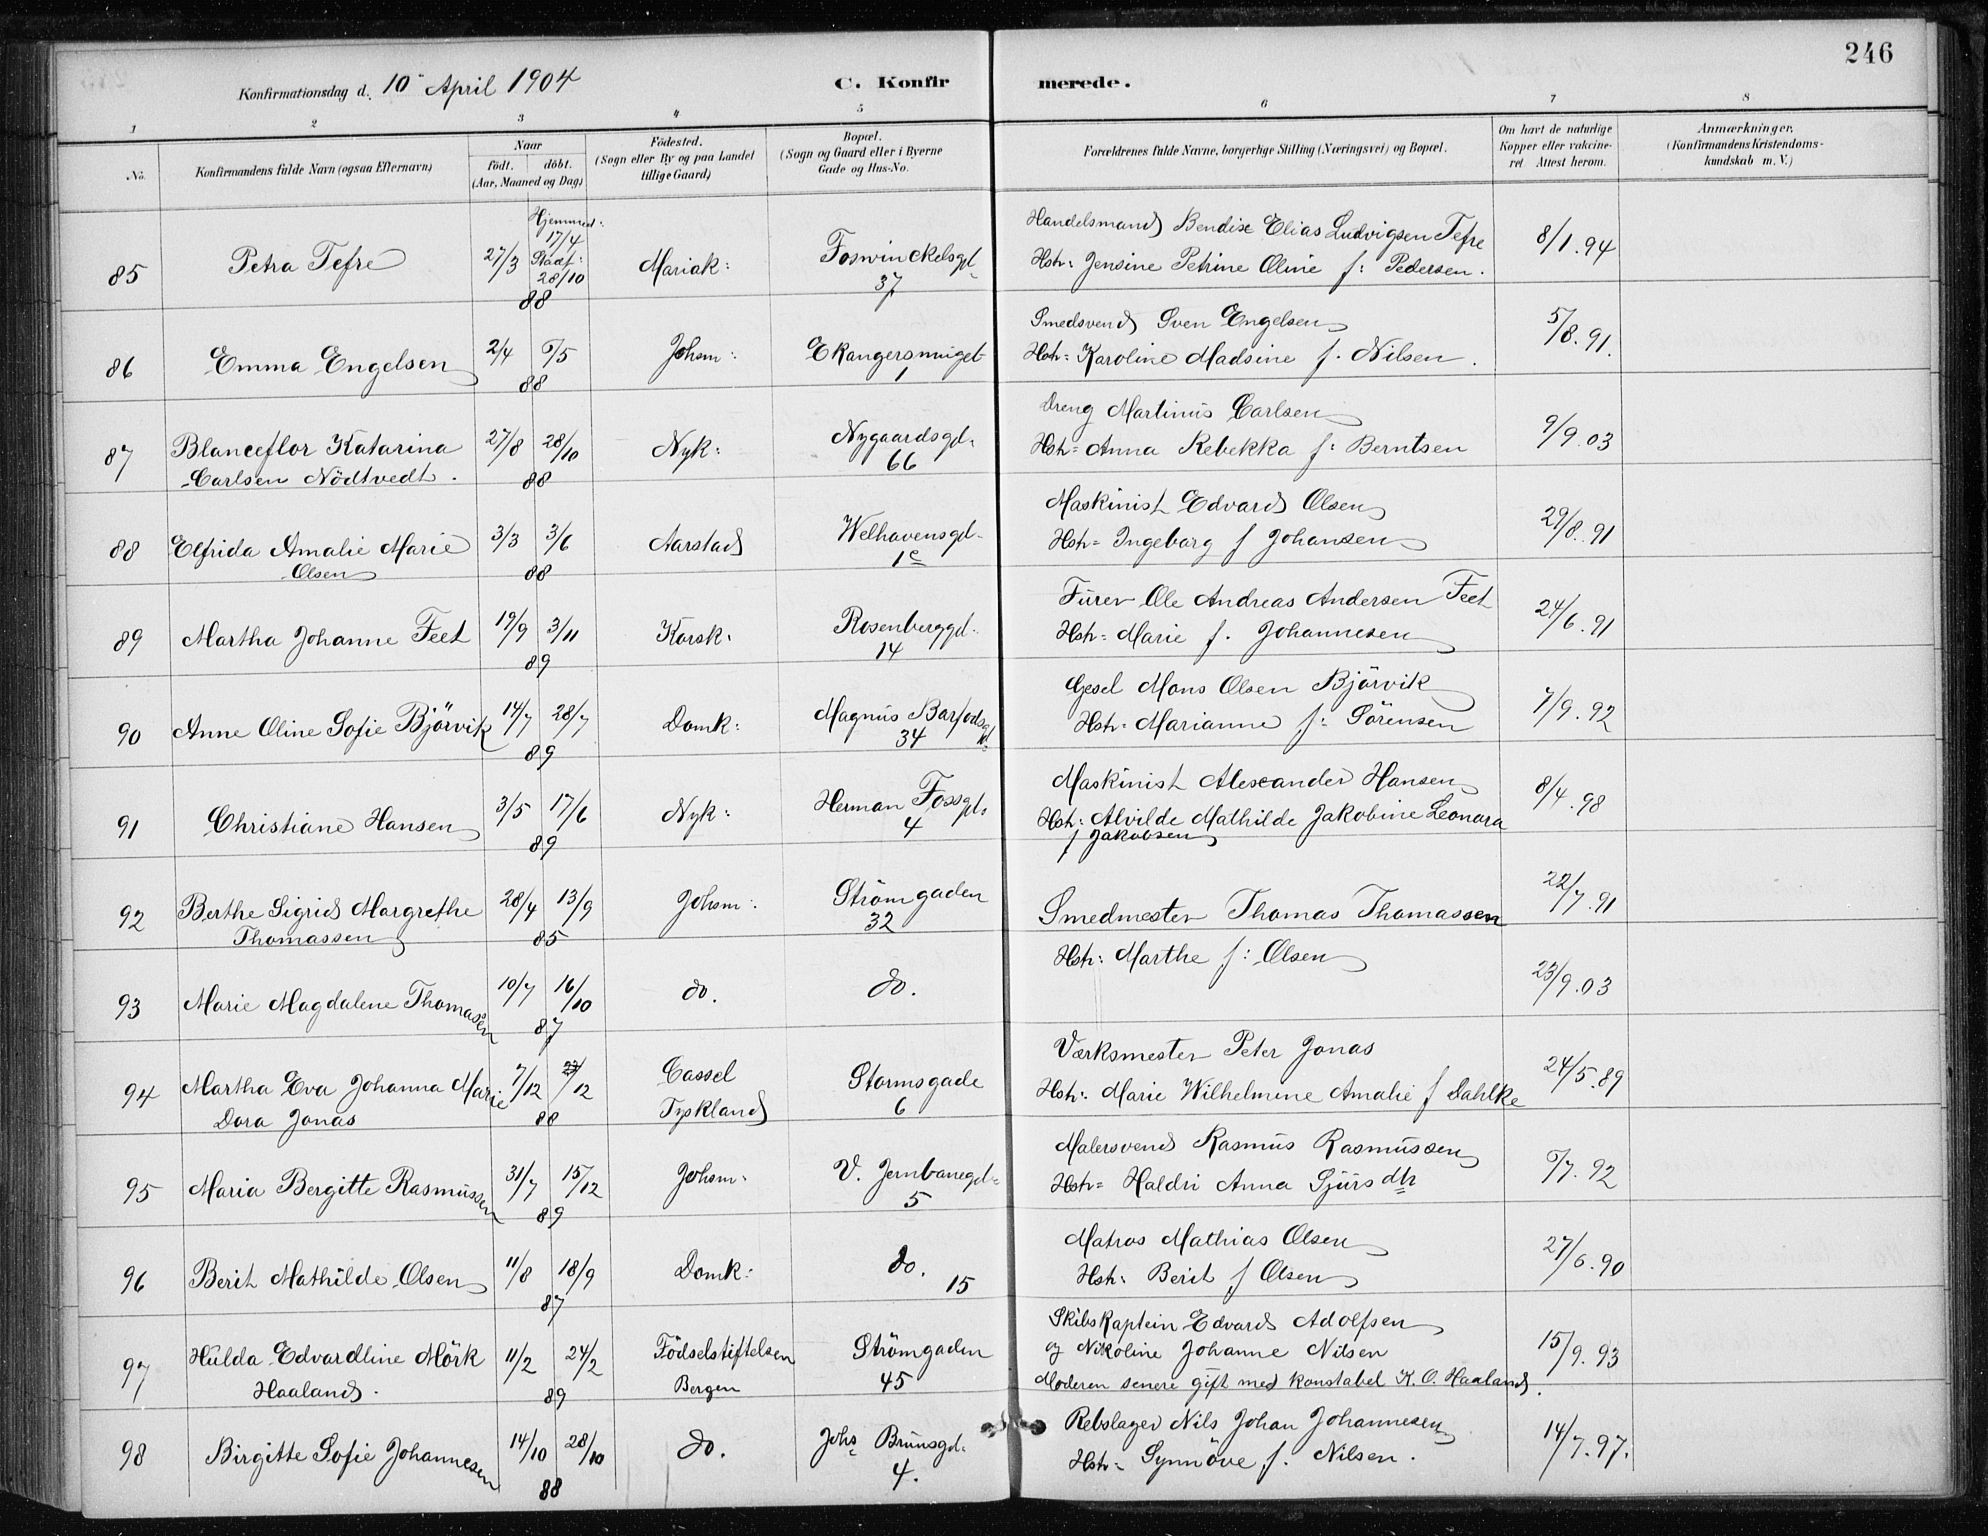 246
Konfirmationsdag d. 10 April 1904 C. Konfirmerede.
1 2 3 4 5 6 7 8
No. Konfirmandens fulde Navn (ogsaa Efternavn) Naar født. døbt. (Aar, Maaned og Dag) Fødested. (Sogn eller By og paa Landet tillige Gaard) Bopæl. (Sogn og Gaard eller i Byerne Gade og Hus-No. Forældrenes fulde Navne, borgerlige Stilling (Næringsvei) og Bopæl. Om havt de naturlige Kopper eller vakcineret. Attest herom. Anmærkninger. (Konfirmandens Kristendomskundskab m. V.)
85 Petra Tefre 27/3 Hjemmed: 17/4 Stadf: 28/10 88 Mariak: Foswinckelsgd. 37 Handelsmand Bendix Elias Ludvigsen Tefre 8/1.94
Hstr: Jensine Petrine Oline f: Pedersen.
86 Emma Engelsen 2/4 6/5 88 Johsm: Ekangersmuget 1 Smedsvend Sven Engelsen 5/8.91.
Hstr: Karoline Madsine f. Nilsen.
87 Blanceflor Katarina Carlsen Nödtvedt. 27/8 28/10 88 Nyk: Nygaardsgd. 66 Dreng Martinus Carlsen 9/9.03
Hstr: Anna Rebekka f: Berntsen
88 Elfrida Amalie Marie Olsen 3/3 3/6 88 Aarstad Welhavensgd. 1c Maskinist Edvard Olsen 29/8.91
Hstr: Ingeborg f Johansen
89 Martha Johanne Feet 19/9 3/11 89 Korsk: Rosenberggd. 14 Furer Ole Andreas Andersen Feet 24/6.91
Hstr: Marie f. Johannesen
90 Anne Oline Sofie Björvik 14/7 28/7 89 Domk: Magnus Barfodsgd. 34 Gesel Mons Olsen Björvik 7/9.92
Hstr: Marianne f: Sörensen
91 Christiane Hansen 3/5 17/6 89 Nyk: Herman Fossgd. 4 Maskinist Alexander Hansen 8/4.98
Hstr: Alvilde Mathilde Jakobine Leonora
f Jakobsen
92 Berthe Sigrid Margrethe Thomassen 28/4 13/9 85 Johsm: Strömgaden 32 Smedmester Thomas Thomassen 22/7.91
Hstr: Marthe f: Olsen
93 Marie Magdalene Thomassen 10/7 16/10 87 do. do. 23/9.03
94 Martha Eva Johanna Marie Dora Jonas 7/12 /12 88 Cassel Tyskland Stormsgade 6 Værksmester Peter Jonas 24/5.89
Hstr: Marie Wilhelmine Amalie f Dahlke
95 Maria Bergitte Rasmussen 31/7 15/12 89 Johsm: V. Jernbanegd. 5 Malersvend Rasmus Rasmussen 6/7.92
Hstr: Haldri Anna Sjürsdtr
96 Berit Mathilde Olsen 11/8 18/9 87 Domk: do. 15 Matros Mathias Olsen 27/6.90
Hstr: Berit f Olsen
97 Hulda Edvardline Mörk Haaland. 11/2 24/2 89 Födselstiftelsen Bergen Strömgaden 45 Skibskaptein Edvard Adolfsen 15/9.93
og Nikoline Johanne Nilsen
Moderen senere gift med konstabel K. O. Haaland.
98 Birgitte Sofie Johannesen 14/10 28/10 88 do. Johs Brunsgd. 4. Rebslager Nils Johan Johannesen 14/7.97.
Hstr: Synnöve f. Nilsen.